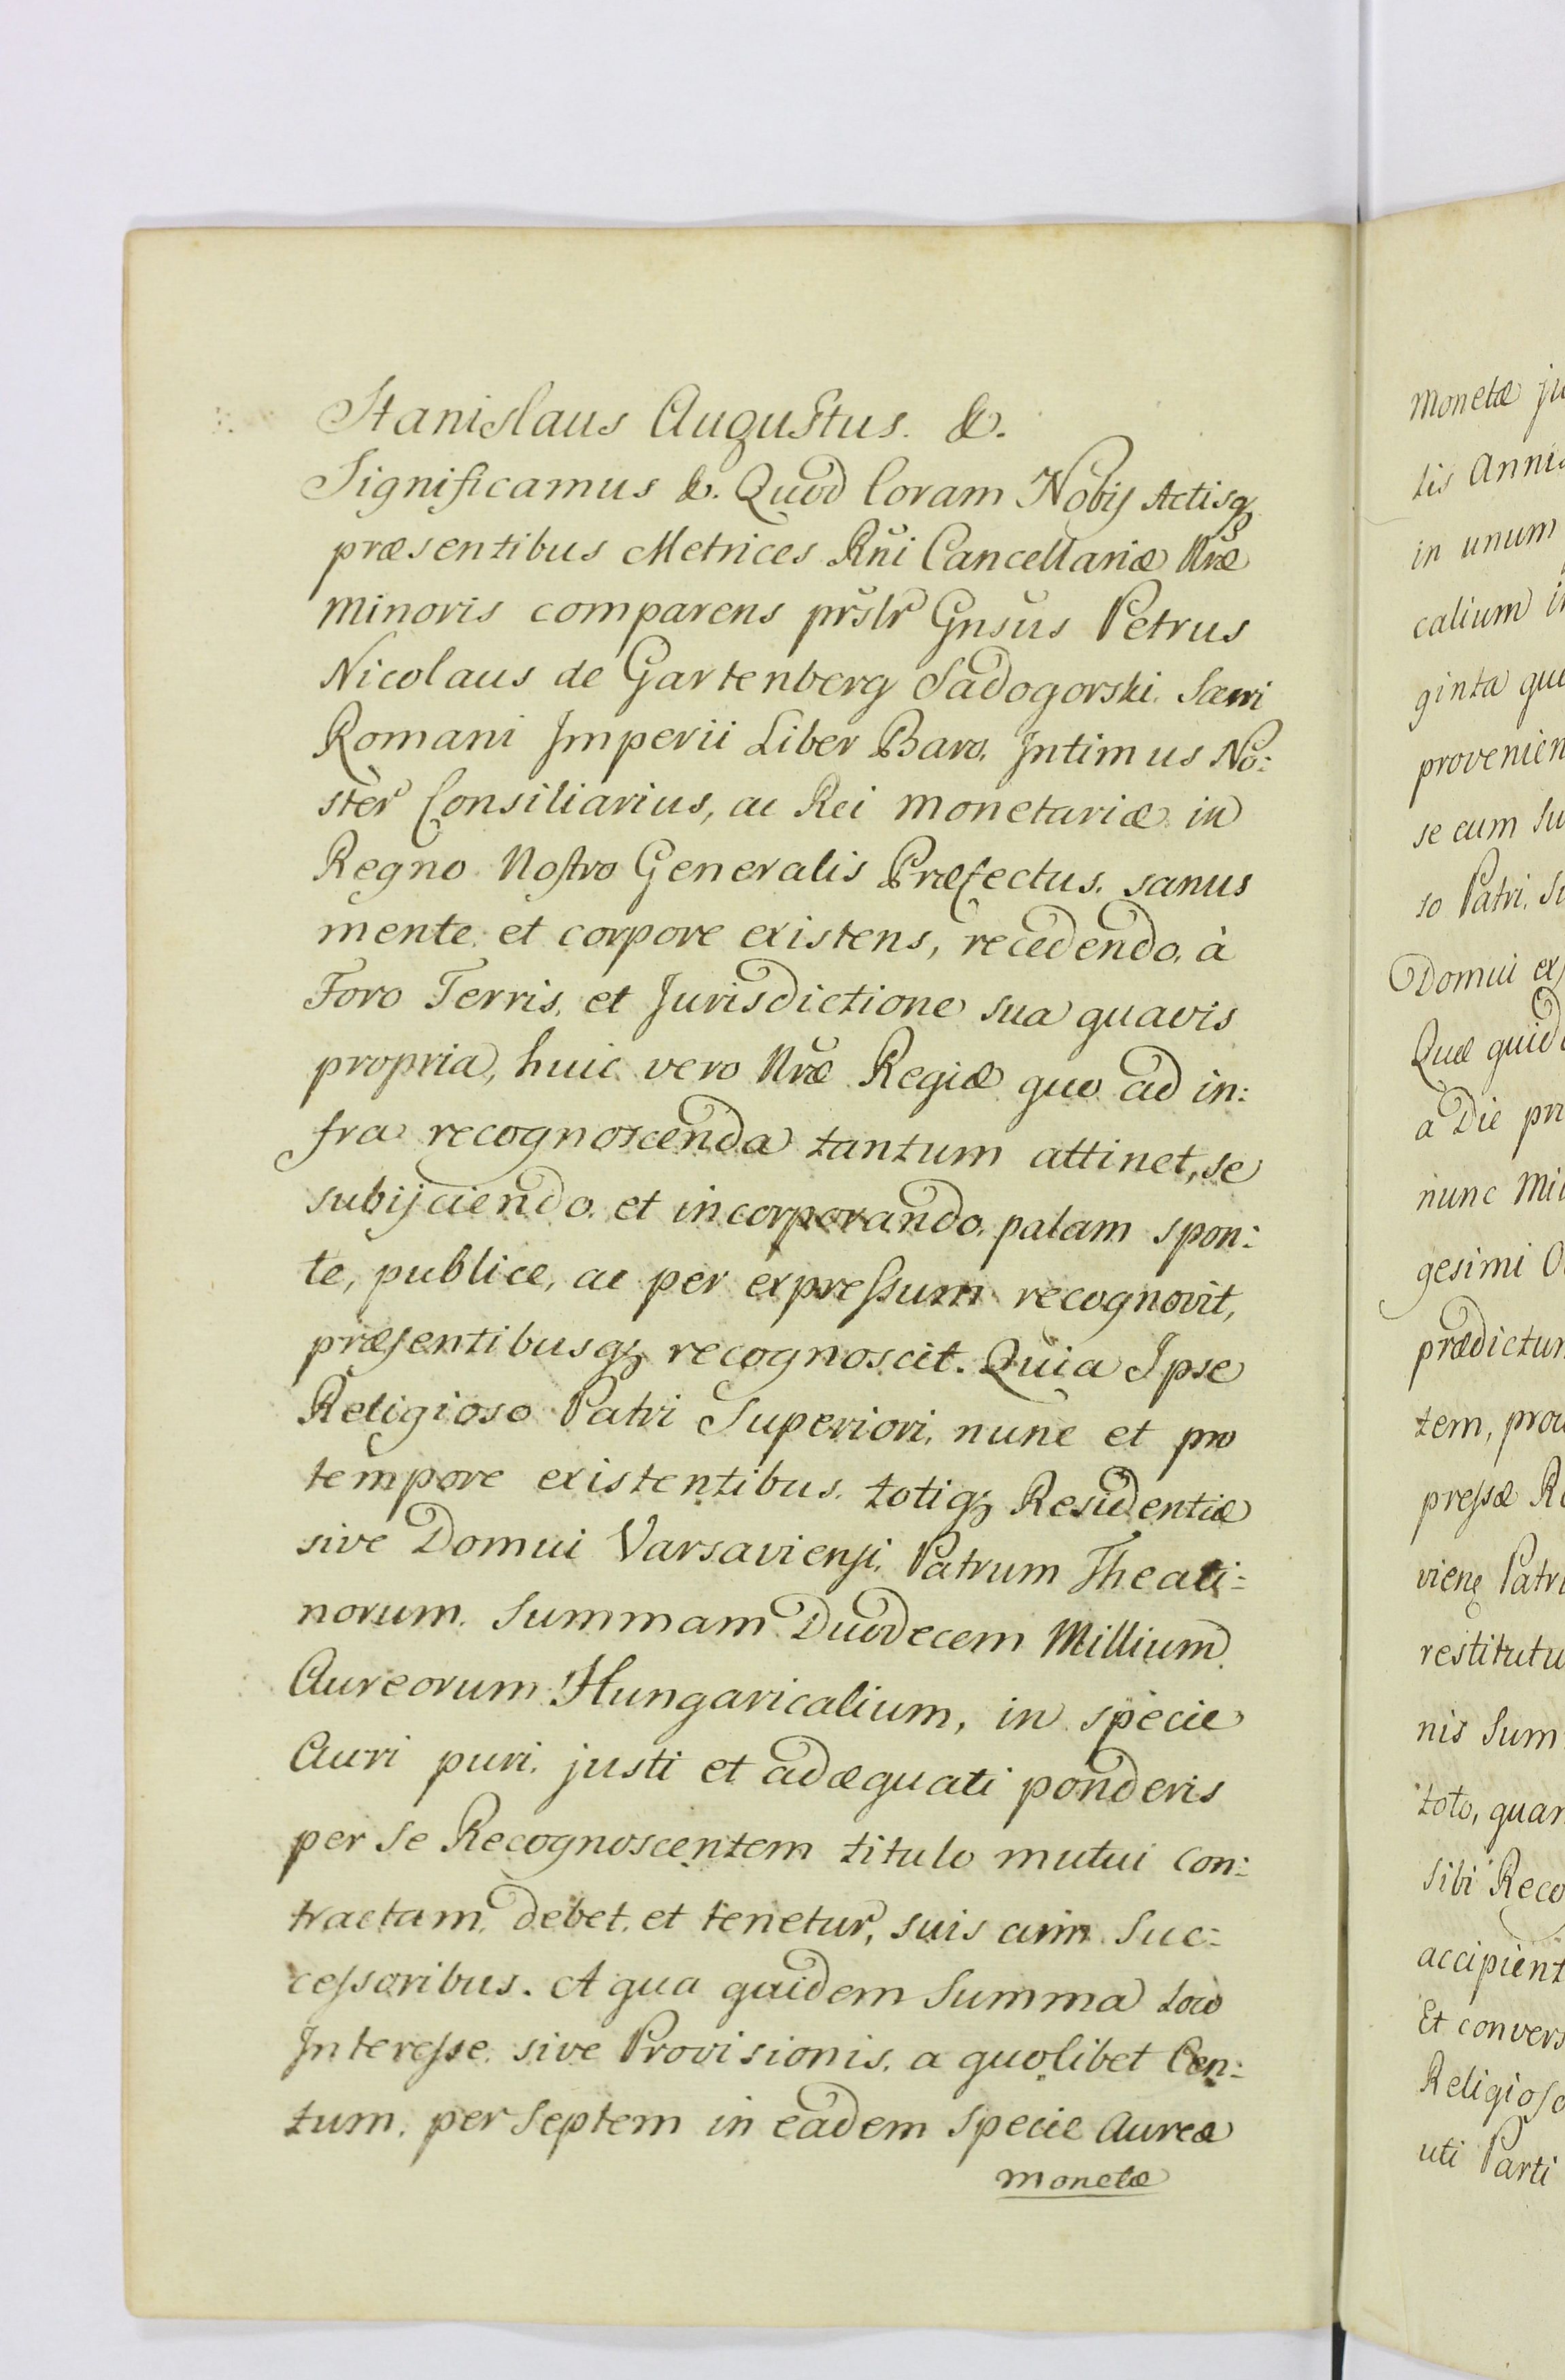 Stanislaus Augustus. &.
Significamus &. Quod Coram Nobis Actisq
præsentibus Metrices Rni Cancellariæ Nræ
minoris comparens prslr Gnsus Petrus
Nicolaus de Gartenberg Sadogorski. Sacri
Romani Imperii Liber Baro. Intimus No:
ster Consiliarius, ac Rei monetariæ in
Regno Nostro Generalis Præfectus. sanus
mente et corpore existens, recedendo. à
Foro Terris, et Jurisdictione sua quavis
propria, huic vero Nræ Regiæ quo ad in:
fra recognoscenda tantum attinet, se
subijciendo. et incorporando. palam spon:
te, publice, ac per expressum recognovit,
præsentibusq recognoscit. Quia Ipse
Religioso Patri Superiori, nunc et pro
tempore existentibus. totiq Residentiæ
sive Domui Varsaviensi. Patrum Theati:
norum. Summam Duodecem Millium
Aureorum Hungaricalium, in specie
Auri puri. justi et adæquati ponderis
per se Recognoscentem titulo mutui con:
tractam. debet. et tenetur, suis cum Suc:
cessoribus. A qua quidem Summa loco
Interesse. sive Provisionis. a quolibet Cen:
tum. per Septem in eadem specie Aureæ
monetæ
monetæ
tis
in unum
calium
ginta
se cum
so Patri.
Domui
Quæ
a Die
nunc
gesimi
tem,
pressæ
restitutu
nis Sum
toto,
Sibi Reco
accipient
Et convers
Religioso
uti Parti